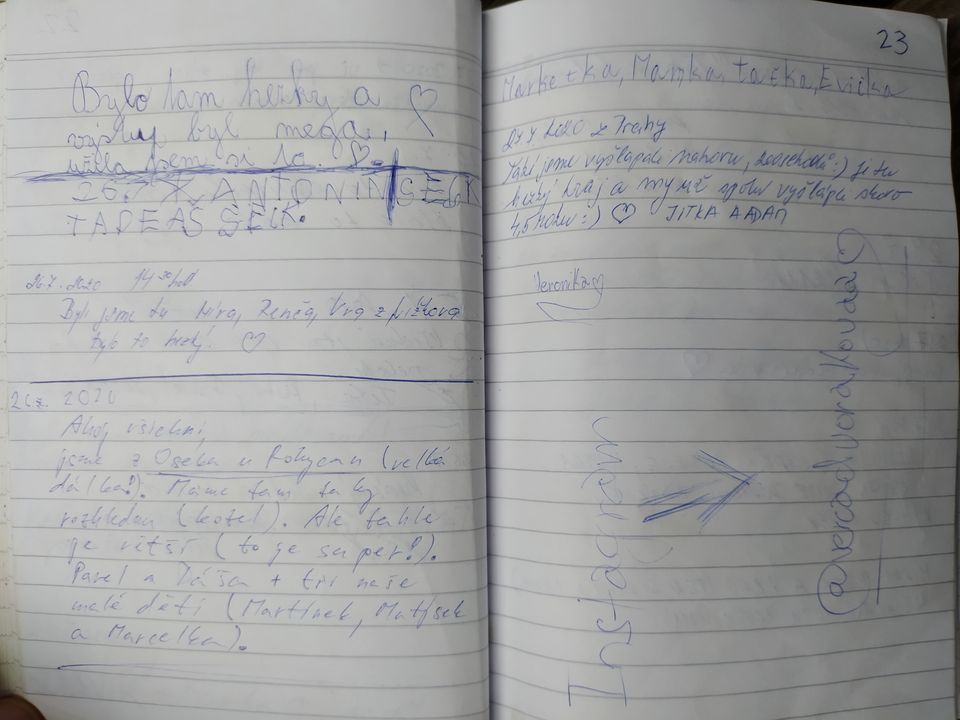 Bylo tam hezky a
výstup byl mega,
užila jsem si to.
26.7. ANTONÍN ŠELK
TADEÁŠ ŠELK.
26.7. 2020 14 30 hod
Byli jsme tu Míra, Renča, z
bylo to hezký.
26.7. 2020
Ahoj všichni,
jsme z Oseka u Rokycan (velká
dálka!). Máme tam taky
rozhlednu (kotel). Ale tahle
je větší (to je super!).
Pavel a Dáša + tři naše
malé děti (Martínek, Matýsek
a Marcelka).
23
Marketka, Mamka, taťka, Evička
27.7. 2020 z Prahy
jsme vyšlapali nahoru, :) je tu
hezký kraj a my už spolu skoro
4,5 roku :) JITKA A ADAM
Veronika
Instagram
@vercadvorakovaa